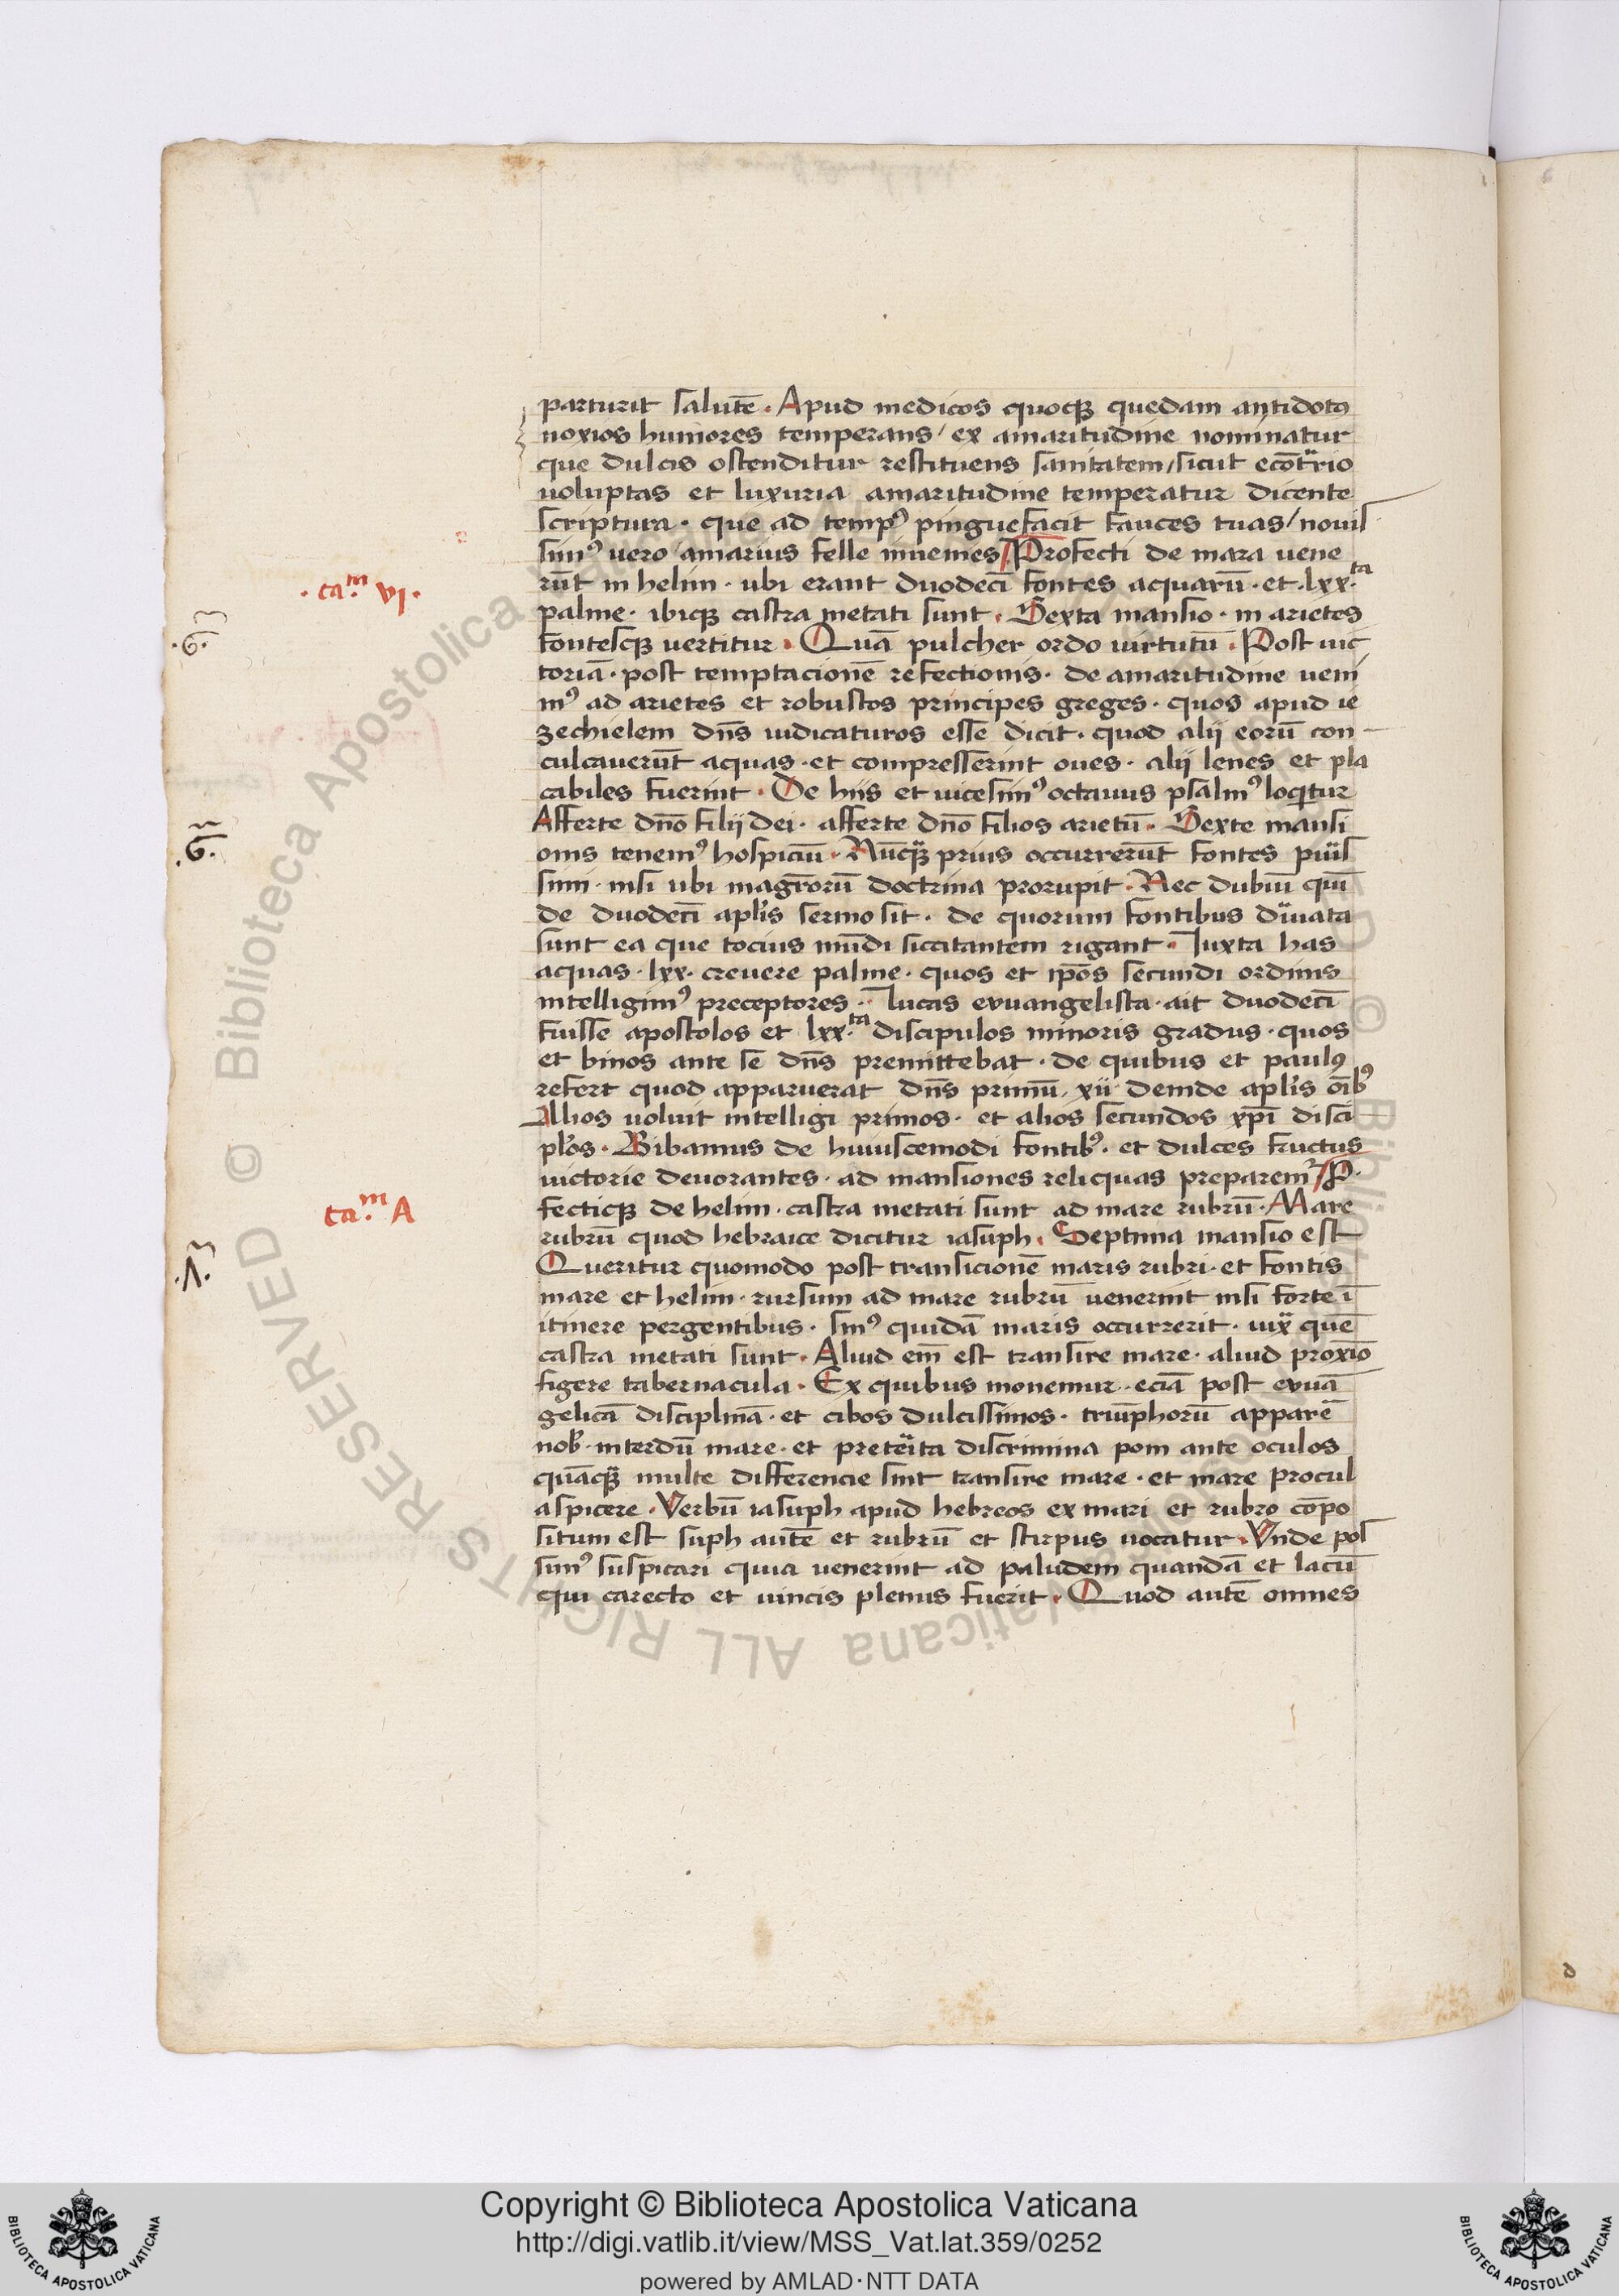 parturit salutē. Apud medicos quoqꝫ quedam antidotꝰ
noxios humores temperans / ex amaritudine nominatur
que dulcis ostenditur restituens sanitatem / sicut ecōtrͣio
uoluptas et luxuria amaritudine temperatur dicente
scriptura · que ad tempꝰ pinguefacit fauces tuas / nouis
simꝰ uero amarius felle inuenies / Profecti de mara uene
rūt in helim · ubi erant duodecī fontes aquarū · et · lxx.ta
palme · ibiqꝫ castra metati sunt. Sexta mansio · in arietes
fontesqꝫ uertitur. Quā pulcher ordo uirtutū. Post uic
toriā · post temptacionē refectionis · de amaritudine ueni
mꝰ ad arietes et robustos principes greges · quos apud ie
zechielem dn̄s iudicaturos esse dicit · quod alij eorū con
culcauerūt aquas · et compresserint oues · alij lenes et pla
cabiles fuerint. De hijs et uicesimꝰ octauus psalmꝰ loqͥtur
Afferte dn̄o filij dei · afferte dn̄o filios arietū. Sexte mansi
onis tenemꝰ hospiciū. Nūqꝫ prius occurrerūt fontes puris
simi · nisi ubi magr̄orū doctrina prorupit. Nec dubiū quī
de duodecī aplīs sermo sit. de quorum fontibus dͥuata
sunt ea que tocius mūdi siccitantem rigant. Iuxta has
aquas · lxx · creuere palme · quos et ipōs secundi ordinis
intelligimꝰ preceptores. Lucas euuangelista · ait duodecī
fuisse apostolos et lxx.ta discipulos minoris gradus · quos
et binos ante se dn̄s premittebat · de quibus et paulꝰ
refert quod apparuerat dn̄s primū / xii deinde aplīs oībꝰ
Alios uoluit intelligi primos · et alios secundos xpī disci
plōs. Bibamus de huiuscemodi fontibꝰ. et dulces fructus
uictorie deuorantes · ad mansiones reliquas preparemr / P.
fectiqꝫ de helim · castra metati sunt ad mare rubrū. Mare
rubrū quod hebraice dicitur iasuph. Septima mansio est
Queritur quomodo post transicionē maris rubri · et fontis
mare et helim · rursum ad mare rubrū uenerint nisi forte ī
itinere pergentibus · sinꝰ quidā maris occurrerit · iuxͣ quē
castra metati sunt. Aliud em̄ est transire mare · aliud proxīo
figere tabernacula. Ex quibus monemur · eciā post euuā
gelicā disciplinā · et cibos dulcissimos · triūphorū apparē
nob̄ · interdū mare · et preterͥta discrimina poni ante oculos
quāqͣꝫ multe differencie sint transire mare · et mare procul
aspicere. Verbū iasuph apud hebreos ex mari et rubro cōpo
situm est suph autē et rubrū et stirpus uocatur. Vnde pos
simꝰ suspicari quia uenerint ad paludem quandā et lacū
qui carecto et iuncis plenus fuerit. Quod autē omnes
· ca.m vj ·
.6.
.6.
ca.m Λ
.Λ.
© Biblioteca Apostolica Vaticana ALL RIGHTS RESERVED
Copyright © Biblioteca Apostolica Vaticana
http://digi.vatlib.it/view/MSS_Vat.lat.359/0252
powered by AMLAD·NTT DATA
BIBLIOTECA APOSTOLICA VATICANA
BIBLIOTECA APOSTOLICA VATICANA